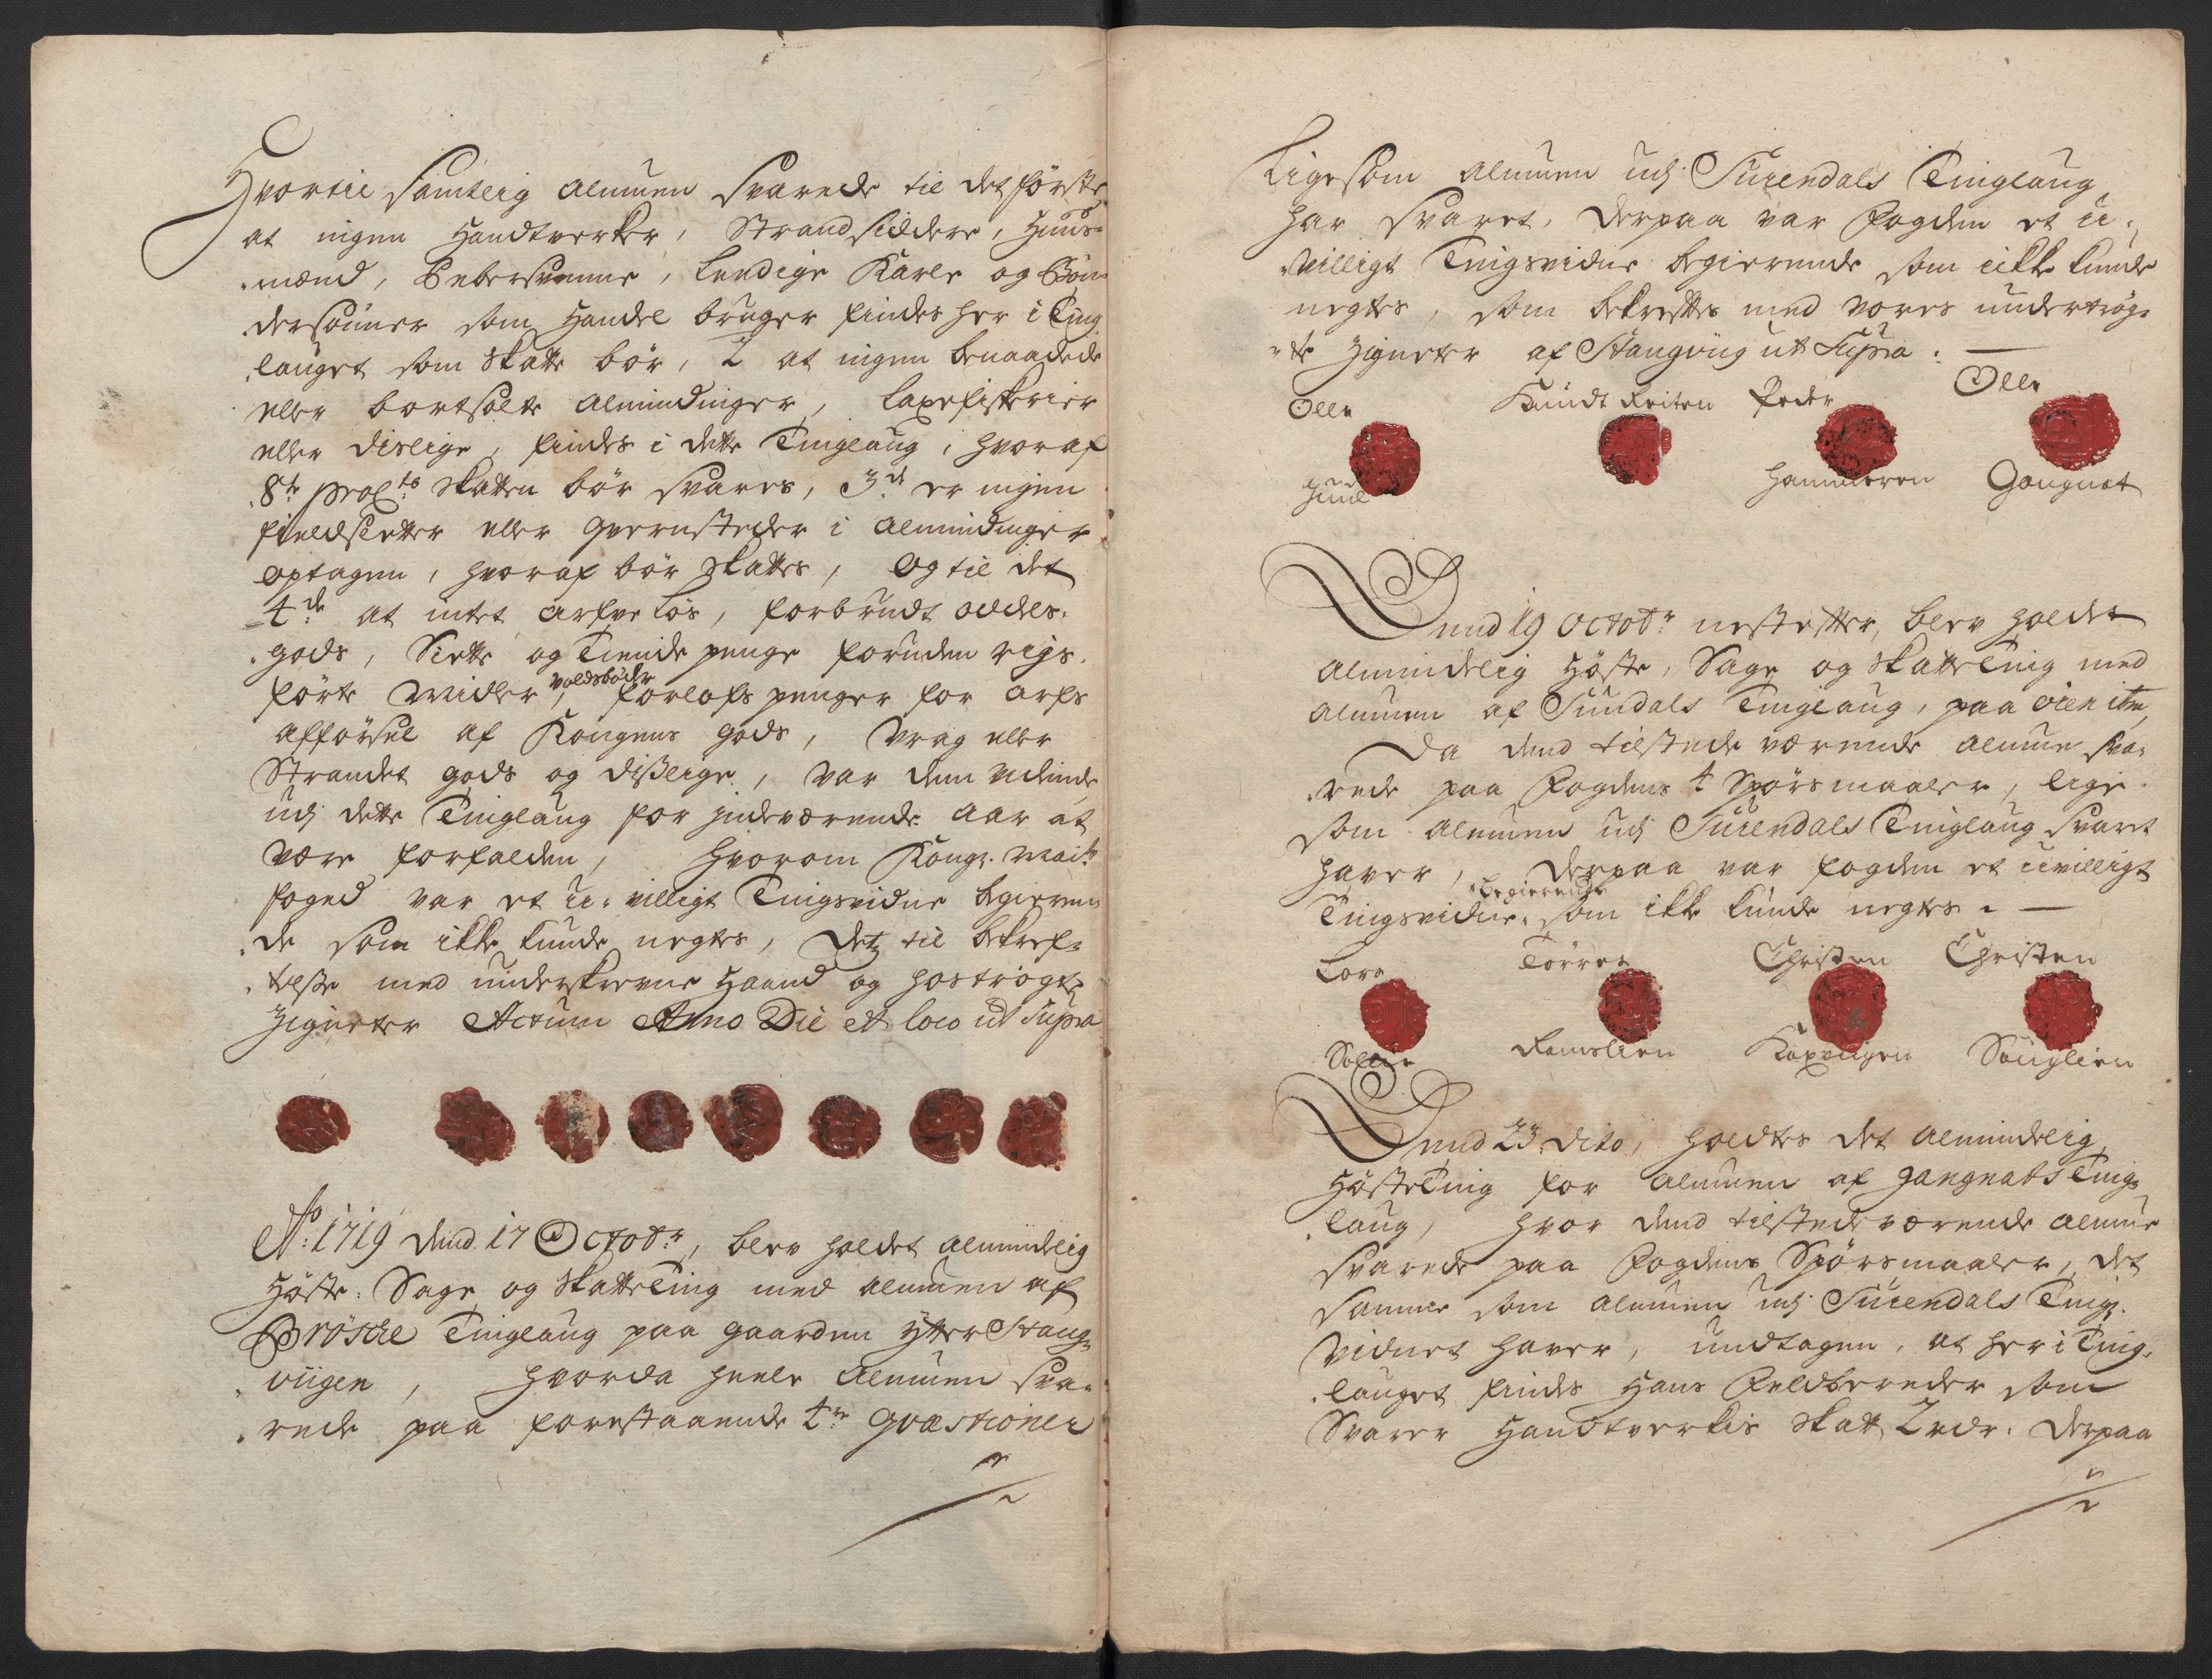 Hvortil samtlig Almuen svarede til det første
at ingen Handtverker, Strandsiddere, Huus-
mænd, Pebersvenne, Lendige Karle og Bøn-
dersønner som Handel bruger findes her i Ting
lauget som Skatte bør, 2 at ingen benaadede
eller bortsolte Almindinger, Laxefiskerier
eller disligr, findes i dette Tinglaug, hvoraf
8te proCto Skatten bør svares, 3de er ingen
fieldsletter eller Qvernsteder i Almindinger
optagen, hvoraf bør Skattes, Og til det
4de at intet Arfveløs, forbrudt Oddels-
gods, Siette og Tiende penge foruden rigs
førte Midler, voldsbøder, forlofs penger for Arfs
Afførsel af Kongens gods, Vrag eller
Strandet gods og disslige, var dem vidende
udj dette Tinglaug for inderværende Aar at
være forfalden, hvorom Kongl. Maits
foged var et u-villigt Tingsvidne begieren-
de som ikke kunde negtes, Detz til bekref-
telsse med underskrevne Haand og hostrøgte
Zigneter Actum Anno Die et loco ut Supra
Ao 1719 dend 17 Octobr, blev holdet almindelig
Høste- Sage og Skatte Ting med Almuen af
Brøskie Tinglaug paa gaarden Ytter Stang-
viigen, hvorda heele Almuen sva-
rede paa forestaaende 4re Qvæstioner
Ligesom Almuen udj Surendals Tinglaug
har svaret, Derpaa var Fogden et u-
villigt Tingsvidne begierende som ikke kunde
negtes, som bekreftes med vores undertrøg-
te Zigneter af Stangviig ut Supra.
Olle Knudt Reiten Peder Olle
Hammeren Gangnat
Dend 19 Octobr nestefter, blev holdet
Almindelig Høste, Sage og Skatte Ting med
Almuen af Sundals Tinglaug, paa
Da dend tilstedeværende Almue sva-
rede paa Fogdens 4 Spørsmaaler, lige-
som Almuen udj Surendals Tinglaug svaret
haver, Derpaa var fogden et uvilligt
Tingsvidne begierende som ikke kunde negtes.
Lars Tørres Christen Christen
Ramslien
Dend 23 dito, holdtes det Almindelig
Høste Ting for Almuen af Gangnats Ting-
laug, hvor dend tilstedeværende Almue
svarede paa Fogdens Spørsmaaler, det
samme som Almuen udj Surendals Tings-
vidnet haver, undtagen, at her i Ting-
lauget findes Hans Feldbereder som
Svarer Handtverkis Skatt 2 rdr. Derpaa